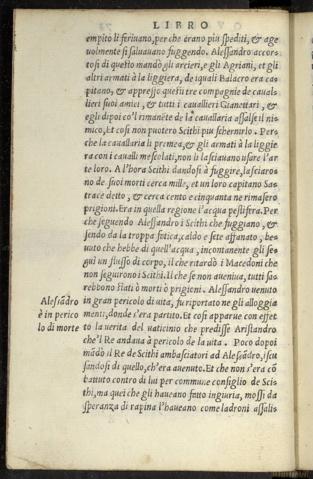 LIBRO
empito li feriuano, per che erano piu spediti, & age
uolmente si saluauano fuggendo. Alessandro accor=
tosi di questo mandò gli arcieri, e gli Agriani, et gli
altri armati à la liggiera, de iquali Balacro era ca=
pitano, & appresso questi tre compagnie de caual=
lieri suoi amici, & tutti i cauallieri Gianettari, &
egli dipoi co'l rimanẽte de la cauallaria assalse il ni=
mico, Et cosi non puotero Scithi piu schernirlo. Per=
che la cauallaria li premea, & gli armati à la liggie
ra con i caualli mescolati, non li lasciauano usare l'ar
te loro. A l'hora Scithi dandosi à fuggire, lasciaro=
no de suoi morti cerca mille, et un loro capitano Sa=
trace detto, & cerca cento e cinquanta ne rimasero
prigioni. Era in quella regione l'acqua pestifera. Per
che seguendo Alessandro i Scithi che fuggiano, &
sendo da la troppa fatica, caldo e sete affanato, be=
uuto che hebbe di quell'acqua, incontanente gli se=
guì un flusso di corpo, il che ritardò i Macedoni che
non seguirono i Scithi. Il che se non aueniua, tutti sa=
rebbono stati ò morti ò prigioni. Alessandro uenuto
Alessãdro
è in perico
lo di morte
in gran pericolo di uita, fu riportato ne gli alloggia
menti, donde s'era partuto. Et cosi apparue con effet
to la uerita del uaticinio che predisse Aristandro
che'l Re andaua à pericolo de la uita. Poco dopoi
mãdò il Re de Scithi ambasciatori ad Alessãdro, iscu
sandosi di quello, ch'era auenuto. Et che non s'era cõ
battuto contro di lui per commune consiglio de Scis
thi, ma quei che gli haueano fatto ingiuria, mossi da
speranza di rapina l'haueano come ladroni assalis